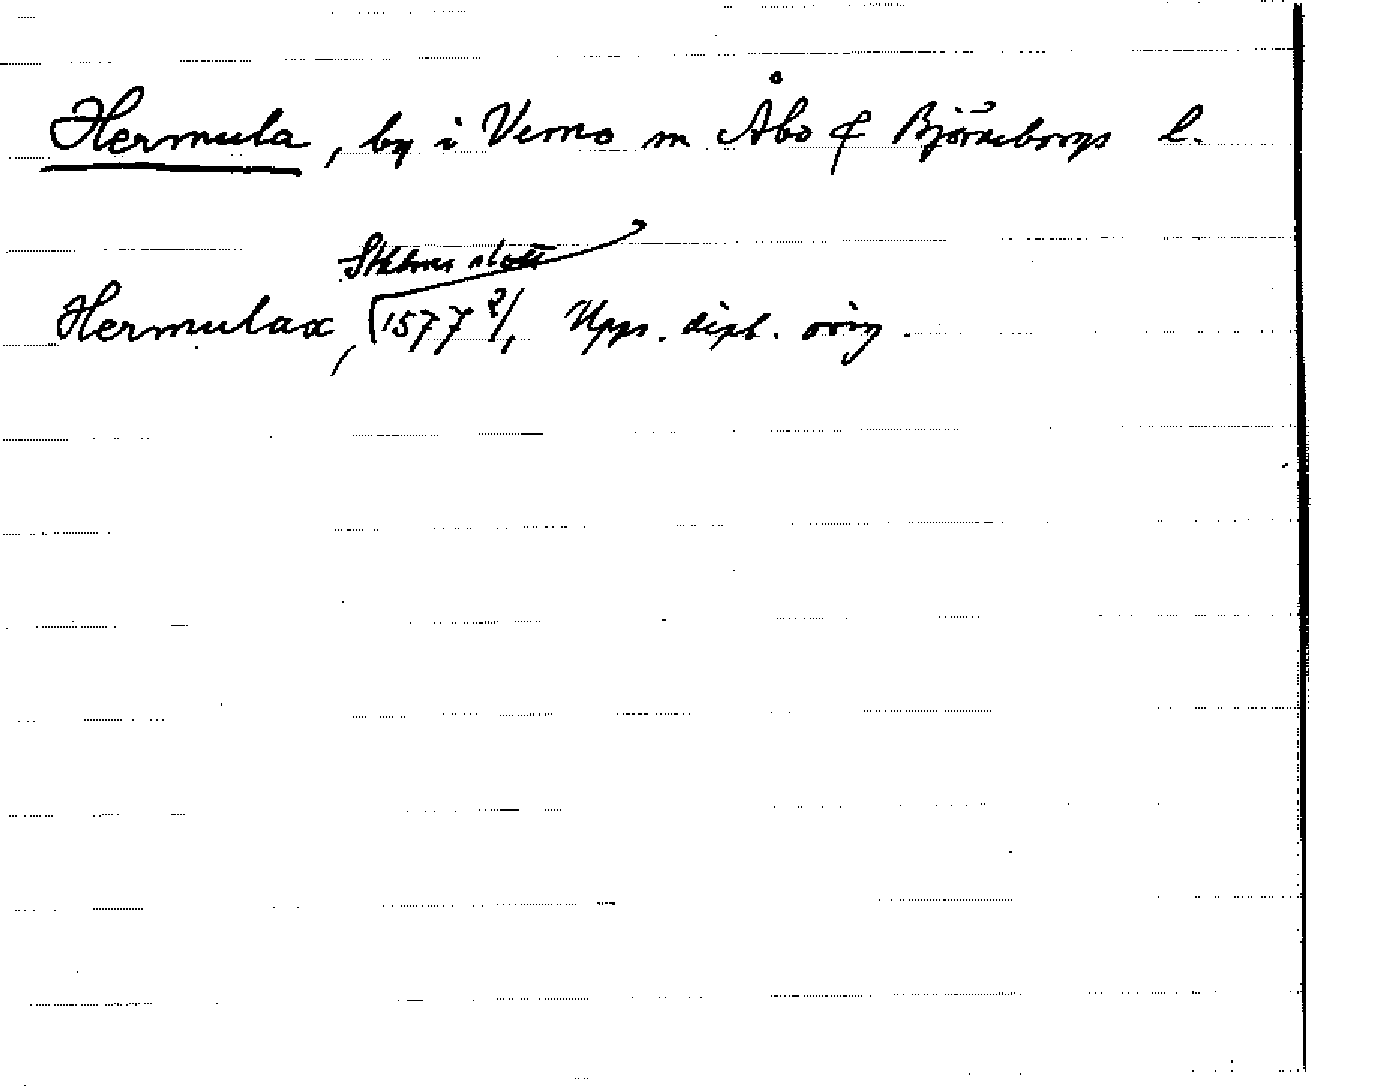 Hermula, by i Vemo sn Åbo & Björneborgs l.
Sthlms slott
Hermulax, (1577 2/, Upps. dipl. orig.